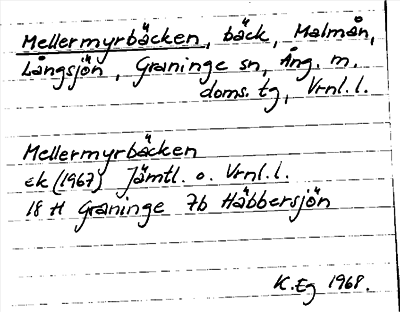 Mellermyrbäcken, bäck, Malmån,
Långsjön, Graninge sn, Ång. m.
doms. tg, Vrnl. l.
Mellermyrbäcken
ek (1967) Jämtl. o. Vrnl. l.
18 H Graninge 7b Häbbersjön
K. Eg 1968.